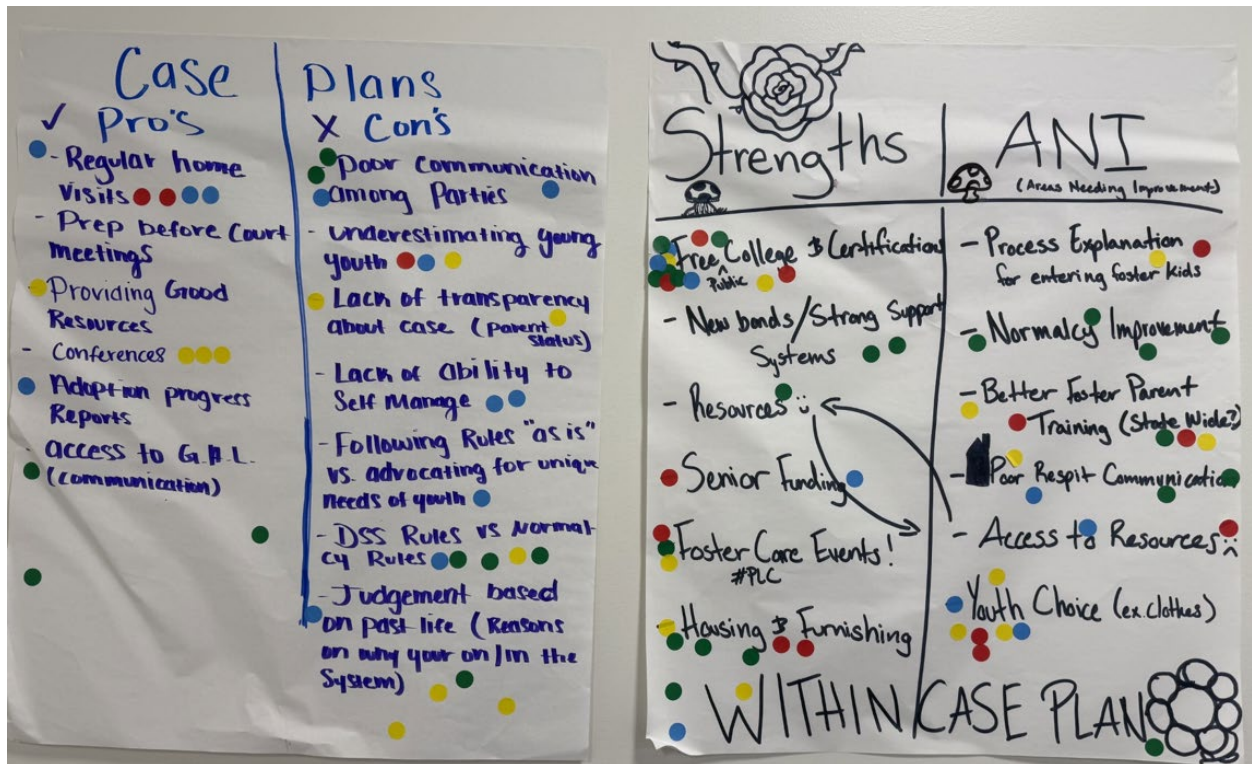 Case Plans
✓ Pro's
- Regular home
visits
- Prep before Court
meetings
- Providing Good
Resources
- Conferences
- Adoption progress
Reports
- access to G.A.L.
(communication)
X Con's
- Poor communication
among Parties
- underestimating young
youth
- Lack of transparency
about case (parent
status)
- Lack of ability to
Self Manage
- Following Rules "as is"
vs. advocating for unique
needs of youth
- DSS Rules vs Normal-
cy Rules
- Judgement based
on past life (Reasons
on why your on/in the
System)
Strengths
- Free College & Certifications
^
Public
- New bonds/Strong Support
Systems
- Resources :)
- Senior Funding
- Foster Care Events!
#PLC
- Housing & Furnishing
ANI
(Areas Needing Improvement)
- Process Explanation
for entering foster kids
- Normalcy Improvement
- Better Foster Parent
Training (State Wide?)
- Poor Respit Communication
- Access to Resources :(
- Youth Choice (ex. clothes)
WITHIN CASE PLAN